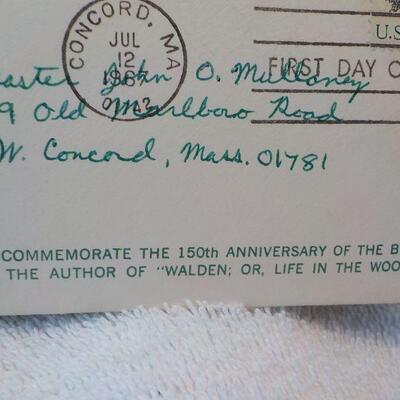 CONCORD, MA
JUL
12
1967
U.S
FIRST DAY O
aster John O. Mullaney
9 Old Marlboro Road
W. Concord, Mass. 01781
COMMEMORATE THE 150th ANNIVERSARY OF THE B
THE AUTHOR OF "WALDEN; OR, LIFE IN THE WOO